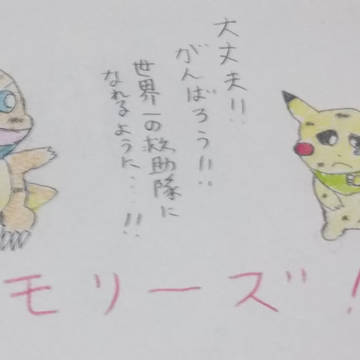 大丈夫!!
がんばろう!!
世界一の救助隊に
なれるように…!!
モリーズ!